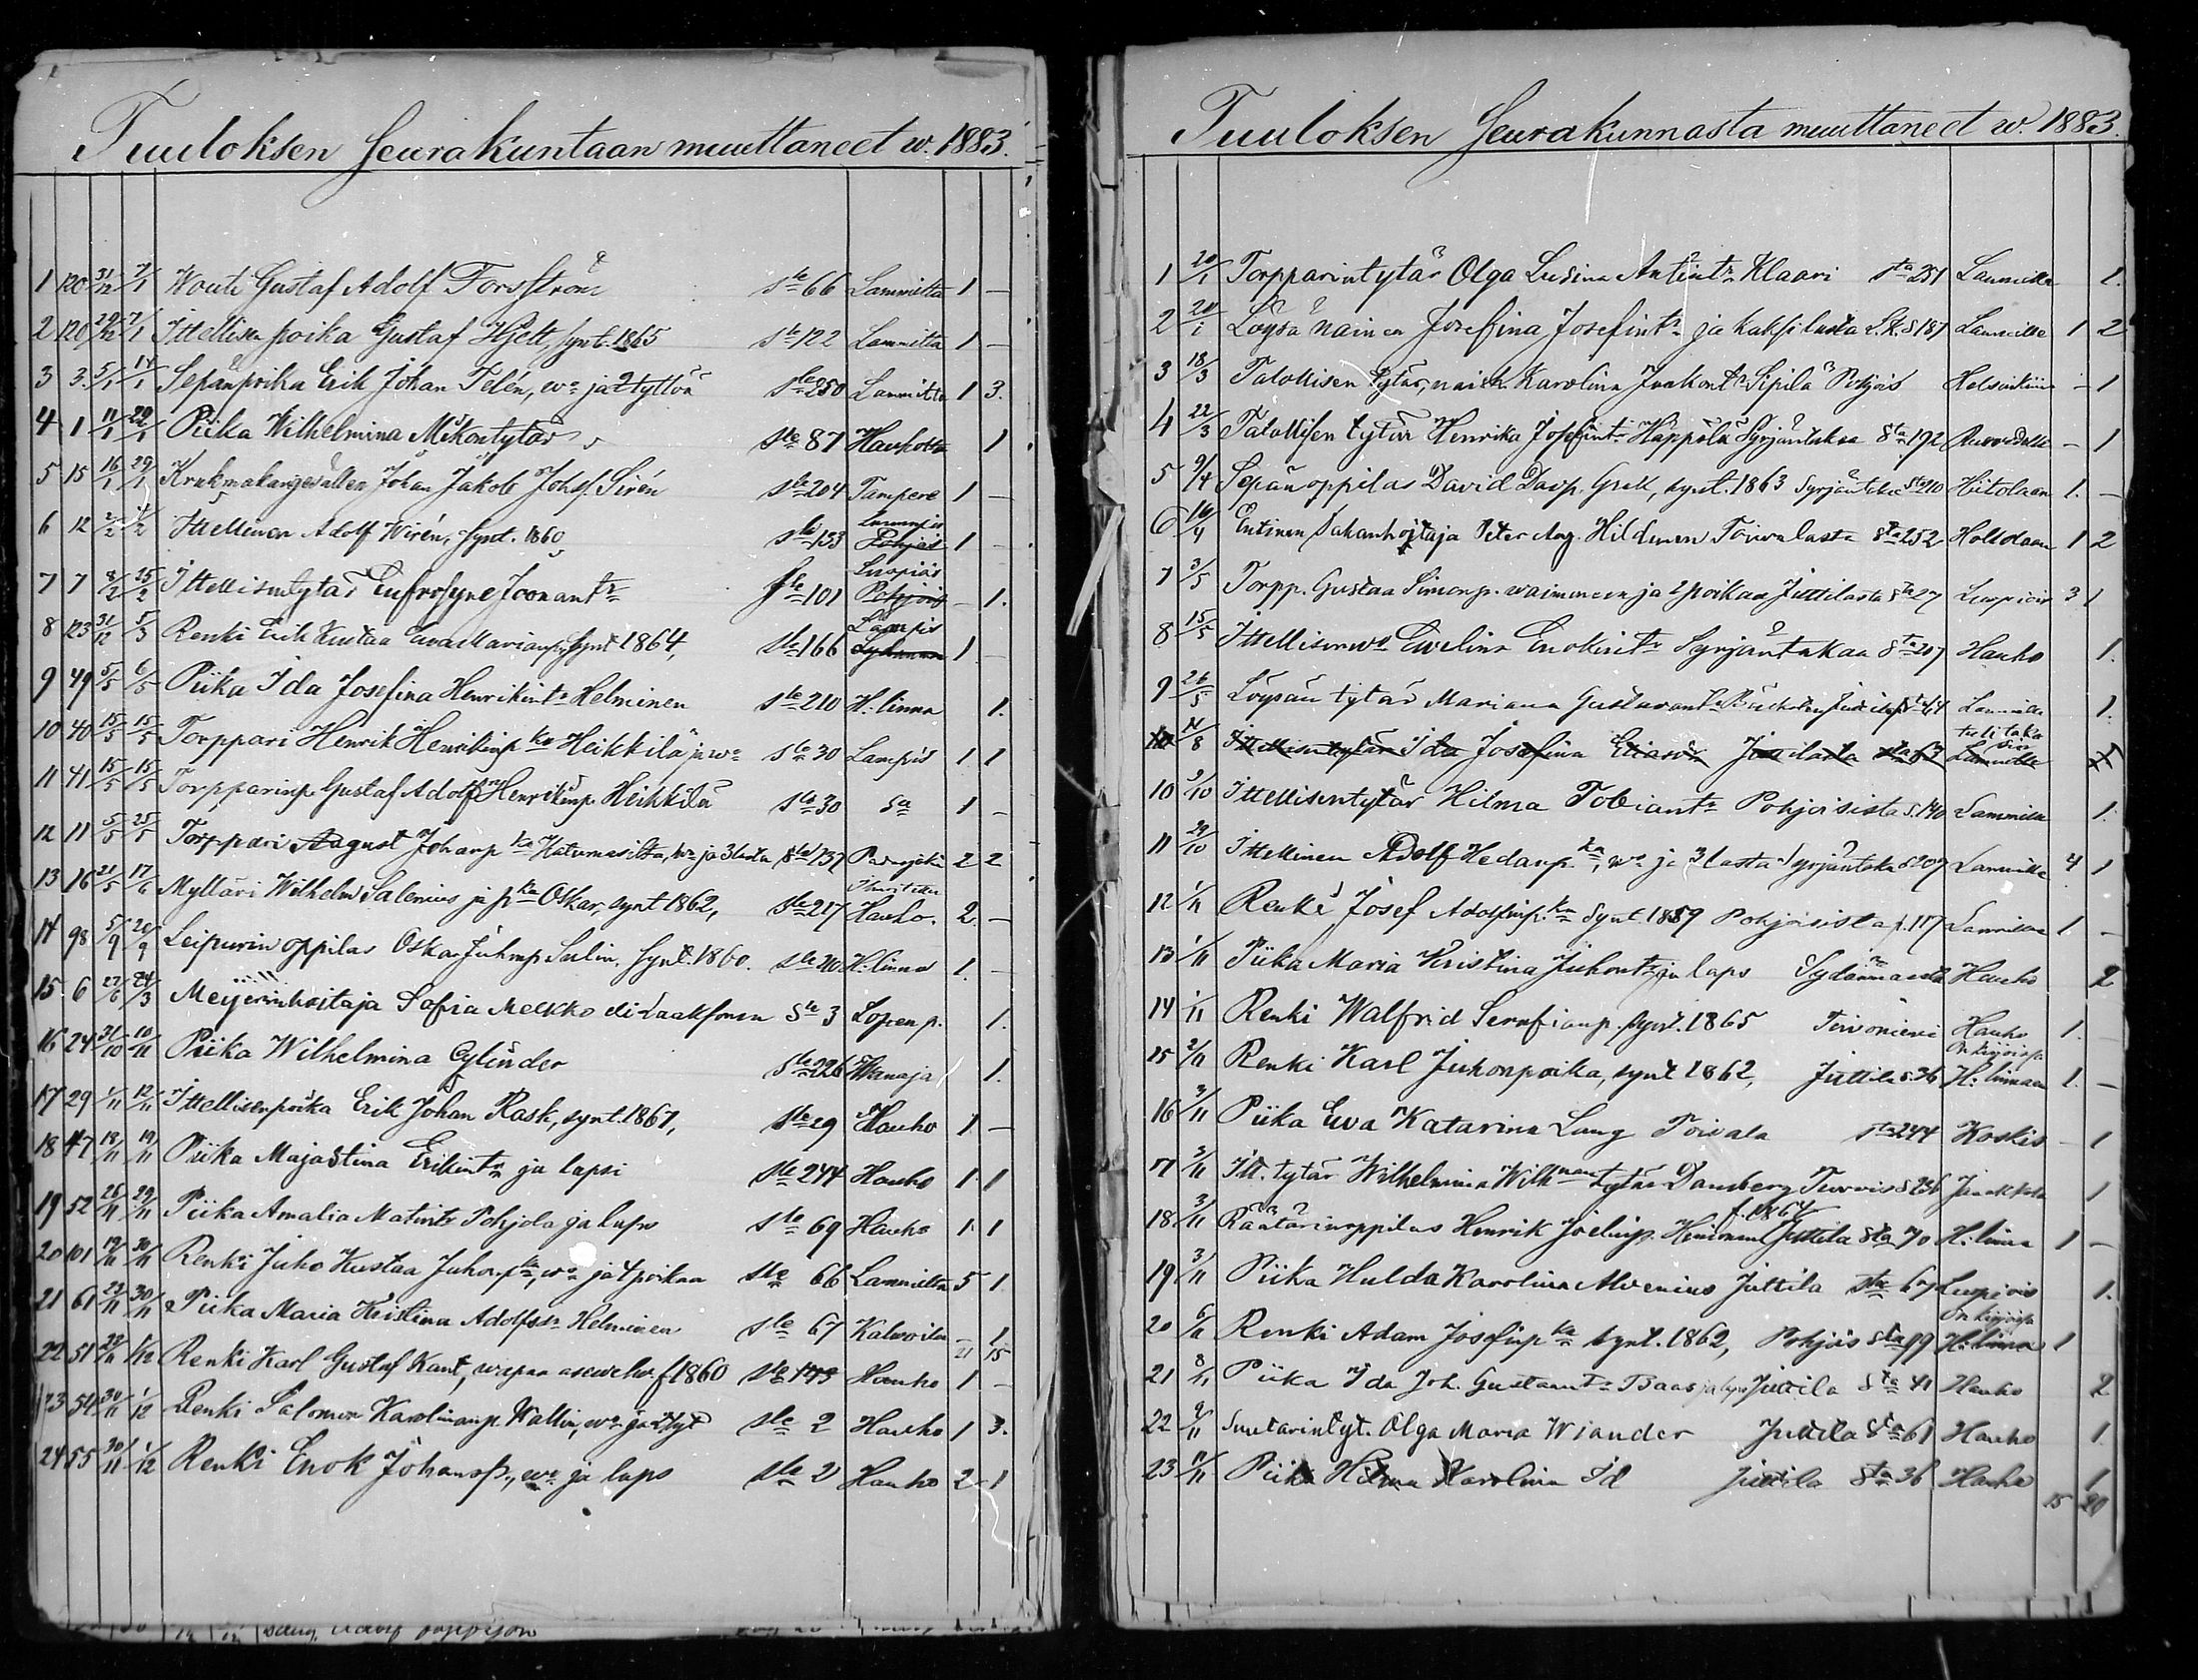 Tuuloksen Seurakuntaan muuttaneet w. 1883.
1 120 31/12 7/1 Wouti Gustaf Adolf Forsström sle 66 Lammilta 1 —
2 120 29/12 7/1 Ittellisen poika Gustaf Hjelt, synt. 1865 sle 122 Lammilta 1 —
3 3. 5/1 14/1 Sepänpoika Erik Johan Telén, wo ja 2 tyttöä sle 250 Lammilta 1 3.
4 1 11/1 29/1 Piika Wilhelmina Mikontytär sle 87 Hauholta 1
5 15 16/1 29/1 Johan Jakob Johsf. Sirén sle 204 Tampere 1 —
6 12 2/2 Ittellinen Adolf Wirén, synt. 1860 sle 133 Pohjois 1 —
7 7 8/2 25/2 Ittellisentytär Eufrosyne Joonantr sle 101 Luopiois Pohjois — 1.
8 123 31/12 5/3 Renki Erik Kustaa synt 1864, sle 166 Lampis 1 —
9 49 5/5 6/5 Piika Ida Josefina Henrikintr Helminen sle 210 H:linna 1.
10 40 15/5 15/5 Torppari Henrik Henrikinp ka Heikkilä ja wo sle 30 Lampis 1 1
11 41 15/5 15/5 Torpparinp. Gustaf Adolf Henrikinp. Heikkilä sle 30 Sa 1 —
12 11 5/5 25/5 Torppari August Johanp ka Katumasilta, wo ja 3 lasta sle 137 Padasjoki 2 2
13 16 21/5 17/6 Mylläri Wilhelm Salenius ja p ka Oskar, synt 1862, sle 217 Hauho. 2 —
14 98 5/9 20/9 Leipurin oppilas Oskar Juhonp. Sulin, synt. 1860. sle 210 H:linna 1. —
15 6 27/6 24/3 Meijerinhoitaja Sofia Melkko eli Laaksonen sle 3 Lopen p. 1.
16 24 31/10 10/11 Piika Wilhelmina Cylinder sle 226 Wanaja 1.
17 29 1/11 12/11 Ittellisenpoika Erik Johan Rask, synt. 1867, sle 29 Hauho 1 —
18 47 18/11 19/11 Piika Majastina Erikintr ja lapsi sle 244 Hauho 1 1
19 52 26/11 29/11 Piika Amalia Matintr Pohjola ja laps sle 69 Hauho 1 1
20 101 19/11 30/11 Renki Juho Kustaa Juhonp ka, wo ja 4 poikaa sle 66 Lammilta 5 1
21 61 23/11 30/11 Piika Maria Kristiina Adolfsr Helminen sle 67 Kalwoila — 1.
21 15
22 51 22/11 1/12 Renki Karl Gustaf Kant, wapaa asewelv. f. 1860 sle 193 Hauho 1 —
23 54 30/11 1/12 Renki Salomon Karolinanp. Wallin, wo ja 2 tyt sle 2 Hauho 1 3.
24 55 30/11 1/12 Renki Enok Johansp., wo ja laps sle 2 Hauho 2 1
Tuuloksen Seurakunnasta muuttaneet w. 1883.
1 20/1 Torpparintytär Olga Lusina Antintr Klaari sta 251 Lammille 1.
2 20/1 Löysä nainen Josefina Josefintr ja kaksi lasta L.K. s 187 Lammille 1 2
3 18/3 Talollisen tytär, Karolina Jaakontr Sipilä Pohjois Helsinkiin — 1
4 22/3 Talollisen tytär Henrika Josefintr Häppölä Syrjäntakaa sta 192 — 1
5 9/4 Sepän oppilas David Davp. Grek, synt. 1863 Syrjäntaka sta 210 Hiitolaan 1. —
6 16/4 Entinen Sahanhoitaja Peter Aug. Hildunen Toiwalasta sta 252 Hollolaan 1 2
7 3/5 Torpp. Gustaa Simonp. waimoneen ja 2 poikaa Juttilasta sta 27 Luopiois 3 1
8 15/5 Ittellisenwo Ewelina Enokintr Syrjäntakaa sta 207 Hauho 1.
9 26/5 Löysän tytär Mariana Gustavantr Lammille 1.
10 14/8 Ittellisentytär Ida Josefina Juttilasta sta 67 Lammille tuli takasin
10 3/10 Ittellisentytär Hilma Tobiantr Pohjoisista s. 140 Lammille 1.
11 29/10 Ittellinen Adolf Hedanp. ka, wo ja 3 lasta Syrjäntaka s 207 Lammille 4 1
12 1/11 Renki Josef Adolfinp. ka synt. 1859 Pohjoisista s. 117 Lammille 1. —
13 1/11 Piika Maria Kristina Juhontr ja laps Sydänmaalta Hauho 2
14 1/11 Renki Walfrid Serafianp. synt. 1865 Toivoniemi Hauho 1. —
15 2/11 Renki Karl Juhonpoika, synt 1862, Juttila s 36 H:linnaan 1. —
16 3/11 Piika Ewa Katarina Lang Toivala sta 244 Koskis — 1
17 3/11 Itt. tytär Wilhelmina Wilhman tytär Damberg s 236 Janakkala 1
18 3/11 Räätärinoppilas Henrik Joelinp. Heinonen f. 1864 Juttila sta 70 H:linna 1 —
19 3/11 Piika Hulda Karolina Alvenius Juttila sta 67 Luopiois 1.
20 6/11 Renki Adam Josefinp ka synt. 1862, Pohjois sta 99 H:linna 1
21 8/11 Piika Ida Joh. Gustaantr Baas ja laps Juttila sta 41 Hauho 2
22 9/11 Suutarintyt. Olga Maria Wiander Juttila sta 61 Hauho 1.
23 11/11 Piika Hilma Karolina Id Juttila sta 36 Hauho 1
15 20